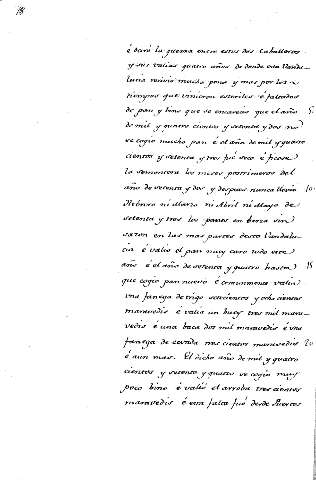 é duró la guerra entre estos dos Caballeros
y sus valias quatro años de donde esta Vanda-
lucia recivio mucha pena y mas por los
tiempos que vinieron esteriles é faltados
de pan y bino que se encareció que el año 5
de mil y quatro cientos y setenta y dos no
se cogio mucho pan é el año de mil y quatro
cientos y setenta y tres fue seco é
la sementera los meses postrimeros del
año de setenta y dos y despues nunca llovio 10
ni Marzo ni Abril ni Mayo de
setenta y tres los panes en berza sin
sazon en las mas partes desta Vandalu-
cia é valió el pan muy caro todo este
año é el año de setenta y quatro hasta 15
que cogio pan nuevo é comunmente valia
una fanega de trigo setecientos y ocho cientos
maravedis é valia un buey tres mil mara-
vedis é una baca dos mil maravedis é una
fanega de cevada tres cientos maravedis 20
é aun mas. El dicho año de mil y quatro
cientos y setenta y quatro se cogio muy
poco bino é valió el arroba tres cientos
maravedis é esta falta fué desde Puertos